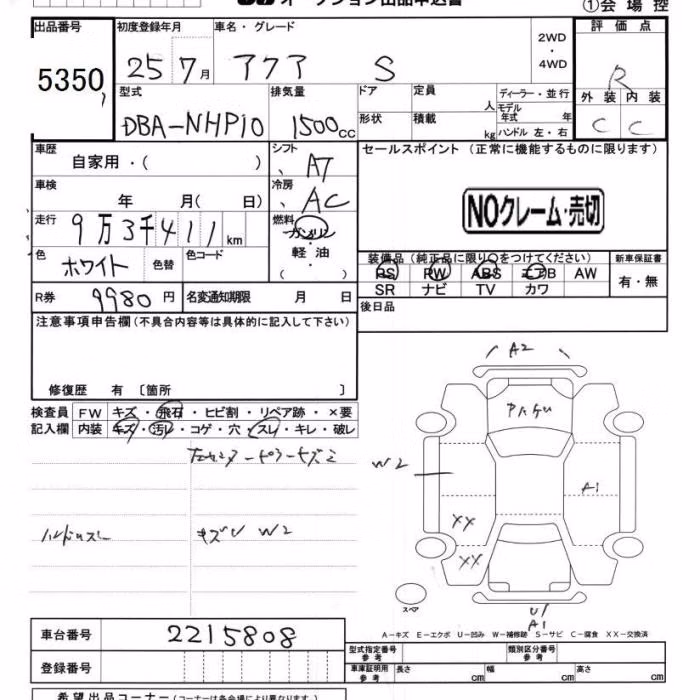 オークション出品申込書 ①会場控
出品番号 初度登録年月 車名・グレード 評価点
5350 25 7月 アクア S 2WD ・ 4WD R
型式 排気量 ドア 定員 人 ディーラー・並行 外装 内装
DBA-NHP10 1500cc 形状 積載 kg モデル年式 年 C C
ハンドル 左・右
車歴 シフト セールスポイント (正常に機能するものに限ります)
自家用・( ) AT
車検 年 月( 日) 冷房 AC NOクレーム・売切
走行 9万3千411km 燃料 ガソリン
軽油
( )
色 ホワイト 色替 色コード
装備品 (純正品に限り○をつけてください) 新車保証書
PS PW ABS エアB AW 有・無
SR ナビ TV カワ
R券 9980円 名変通知期限 月 日 後日品
注意事項申告欄 (不具合内容等は具体的に記入して下さい)
修復歴 有 [箇所 ]
検査員 FW キズ・飛石・ヒビ割・リペア跡・×要
記入欄 内装 キズ・汚レ・コゲ・穴・スレ・キレ・破レ
A2
W2
A1
XX
ハンドルスレ キズU W2
XX
スペア
U1
A1
A-キズ E-エクボ U-凹み W-補修跡 S-サビ C-腐食 XX-交換済
車台番号 2215808
型式指定番号 参考 類別区分番号 参考
登録番号 車庫証明用 参考 長さ cm 幅 cm 高さ cm
希望出品コーナー (コーナーは各会場により異なります)